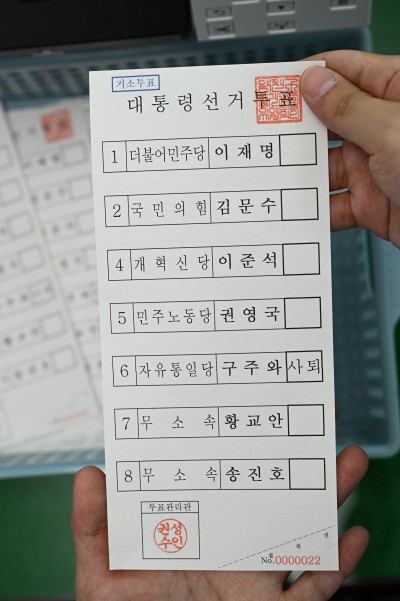 거소투표
대통령선거투표
1 더불어민주당 이재명
2 국민의힘 김문수
4 개혁신당 이준석
5 민주노동당 권영국
6 자유통일당 구주와 사퇴
7 무소속 황교안
8 무소속 송진호
투표관리관
No.0000022